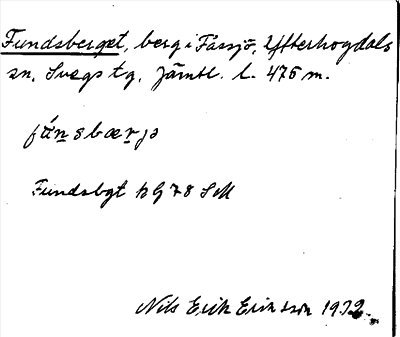 Fundsberget, berg i Fåssjö, Ytterhogdals
sn, Svegs tg, Jämtl. l. 476 m.
fúnsbærjə
Fundsbgt hg 78 SM
Nils Erik Eriksson 1932.